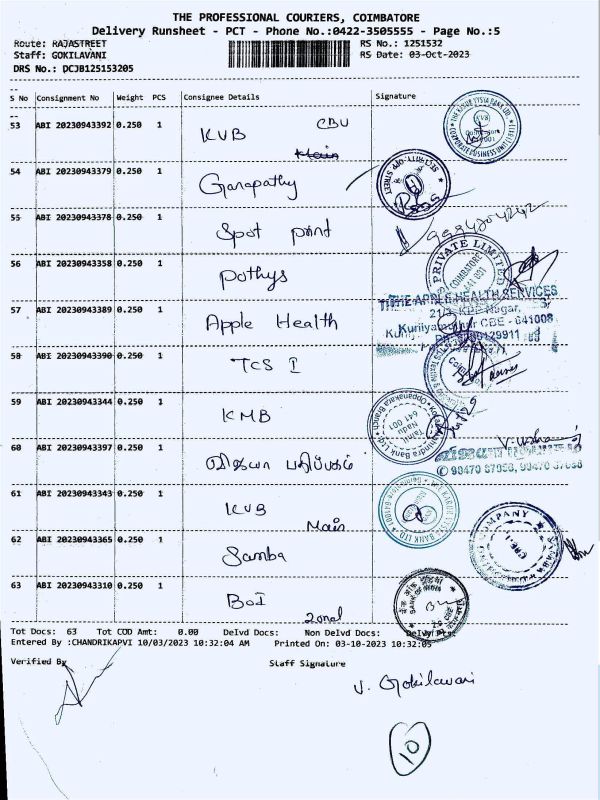 THE PROFESSIONAL COURIERS, COIMBATORE
Delivery Runsheet - PCT - Phone No.:0422-3505555 - Page No.:5
Route: RAJASTREET RS No.: 1251532
Staff: GOKILAVANI RS Date: 03-Oct-2023
DRS No.: DCJB125153205
S No Consignment No Weight PCS Consignee Details Signature
53 ABI 20230943392 0.250 1 KVB CBU
Main
54 ABI 20230943379 0.250 1 Ganapathy
55 ABI 20230943378 0.250 1 Spot point
56 ABI 20230943358 0.250 1 Pothys
PRIVATE LIMITED
COIMBATORE
641 001
57 ABI 20230943389 0.250 1 Apple Health
THE APPLE HEALTH SERVICES
21/3, KPP Nagar,
CBE - 641008
58 ABI 20230943390 0.250 1 TCS I
59 ABI 20230943344 0.250 1 KMB
Tamil
Nadu
641 001
60 ABI 20230943397 0.250 1 விஜயா பதிப்பகம்
90470 87058, 90470 87068
61 ABI 20230943343 0.250 1 KVB
Main
62 ABI 20230943365 0.250 1 Samba
COMPANY
63 ABI 20230943310 0.250 1 BoI
Zonal
Tot Docs: 63 Tot COD Amt: 0.00 Delvd Docs: Non Delvd Docs:
Entered By :CHANDRIKAPVI 10/03/2023 10:32:04 AM Printed On: 03-10-2023 10:32:05
Verified By Staff Signature
V. Gokilavani
10